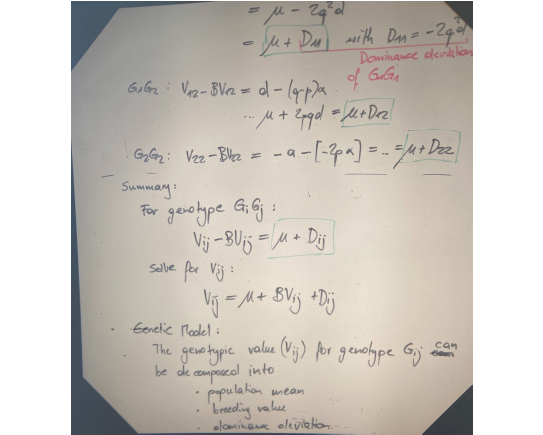 = μ - 2q²d
= μ + D₁₁ with D₁₁ = -2q²d
Dominance deviation
of G₁G₁
G₁G₂ : V₁₂ - BV₁₂ = d - (q-p)α
... μ + 2pqd = μ + D₁₂
G₂G₂ : V₂₂ - BV₂₂ = -a - [-2pα] = .. = μ + D₂₂
Summary :
For genotype GᵢGⱼ :
Vᵢⱼ - BVᵢⱼ = μ + Dᵢⱼ
solve for Vᵢⱼ :
Vᵢⱼ = μ + BVᵢⱼ + Dᵢⱼ
- Genetic Model :
The genotypic value (Vᵢⱼ) for genotype Gᵢⱼ can
be decomposed into
· population mean
· breeding value
· dominance deviation